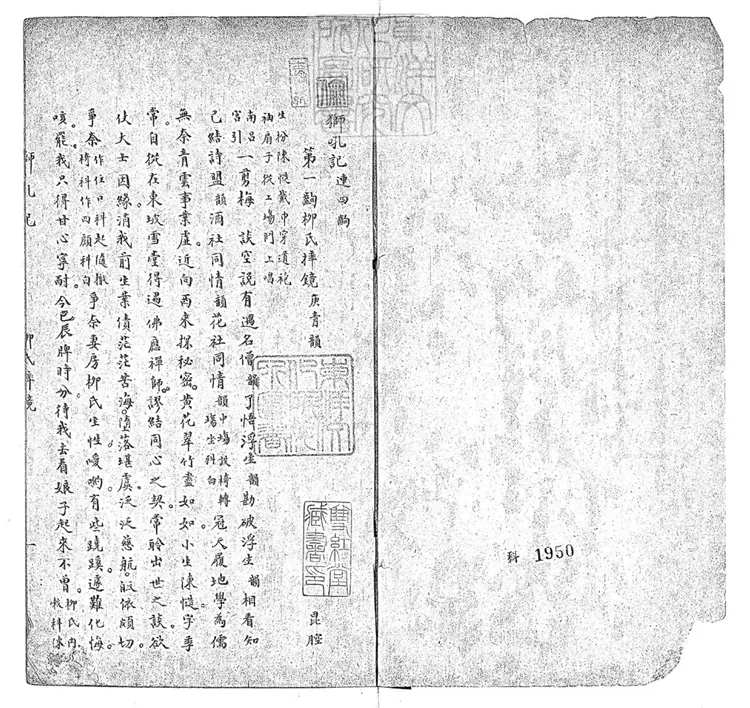 科 1950
東洋文化研究所圖書
獅吼記 連四齣
第一齣柳氏摔鏡 庚青韻 昆腔
生扮陳慥戴巾穿道袍
袖扇子從上場門上唱
南呂宮引 一剪梅 談空說有遇名僧韻了悟浮生韻勘破浮生韻相看知
己結詩盟韻酒社同情韻花社同情韻中場設椅轉場坐科白冠天履地學為儒
無奈青雲事業虛。近向西來探秘密。黃花翠竹盡如如。小生陳慥字季
常。自從在東坡雪堂得遇佛應禪師。謬結同心之契。常聆出世之談。欲
仗大士因緣消我前生業債。茫茫苦海。墮落堪虞。泛泛慈航。皈依頗切。
爭奈作住口科起隨撤椅科作四顧科白爭奈妻房柳氏生性嗳喲有些蹺蹊。遽難化悔。
咳。罷。我只得甘心寧耐。今已辰牌時分。待我去看娘子起來不曾。柳氏內嗽科陳
獅吼記 柳氏摔鏡 一
東洋文化研究所圖書
雙紅堂藏書印